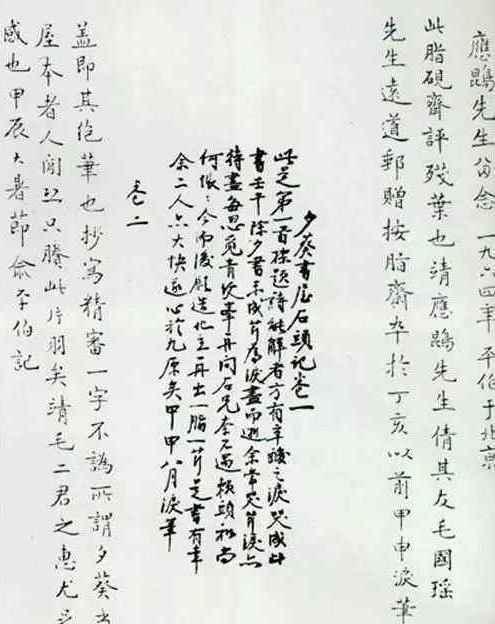 應鵾先生留念 一九六四年 平伯于北京
此脂硯齋評殘葉也靖應鵾先生倩其友毛國瑤
先生遠道郵贈按脂齋卒於丁亥以前甲申淚筆
夕葵書屋石頭記卷一
此是第一首標題詩能解者方有辛酸之淚哭成此
書壬午除夕書未成芹為淚盡而逝余常哭芹淚亦
待盡每思覓青埂峯再問石兄奈不遇賴頭和尚
何悵〻今而後願造化主再出一脂一芹是書有幸
余二人亦大快遂心於九原矣甲申八月淚筆
卷二
蓋即其絕筆也抄寫精審一字不譌所謂夕葵書
屋本者人間恐只賸此片羽矣靖毛二君之惠尤足
感也甲辰大暑節俞平伯記